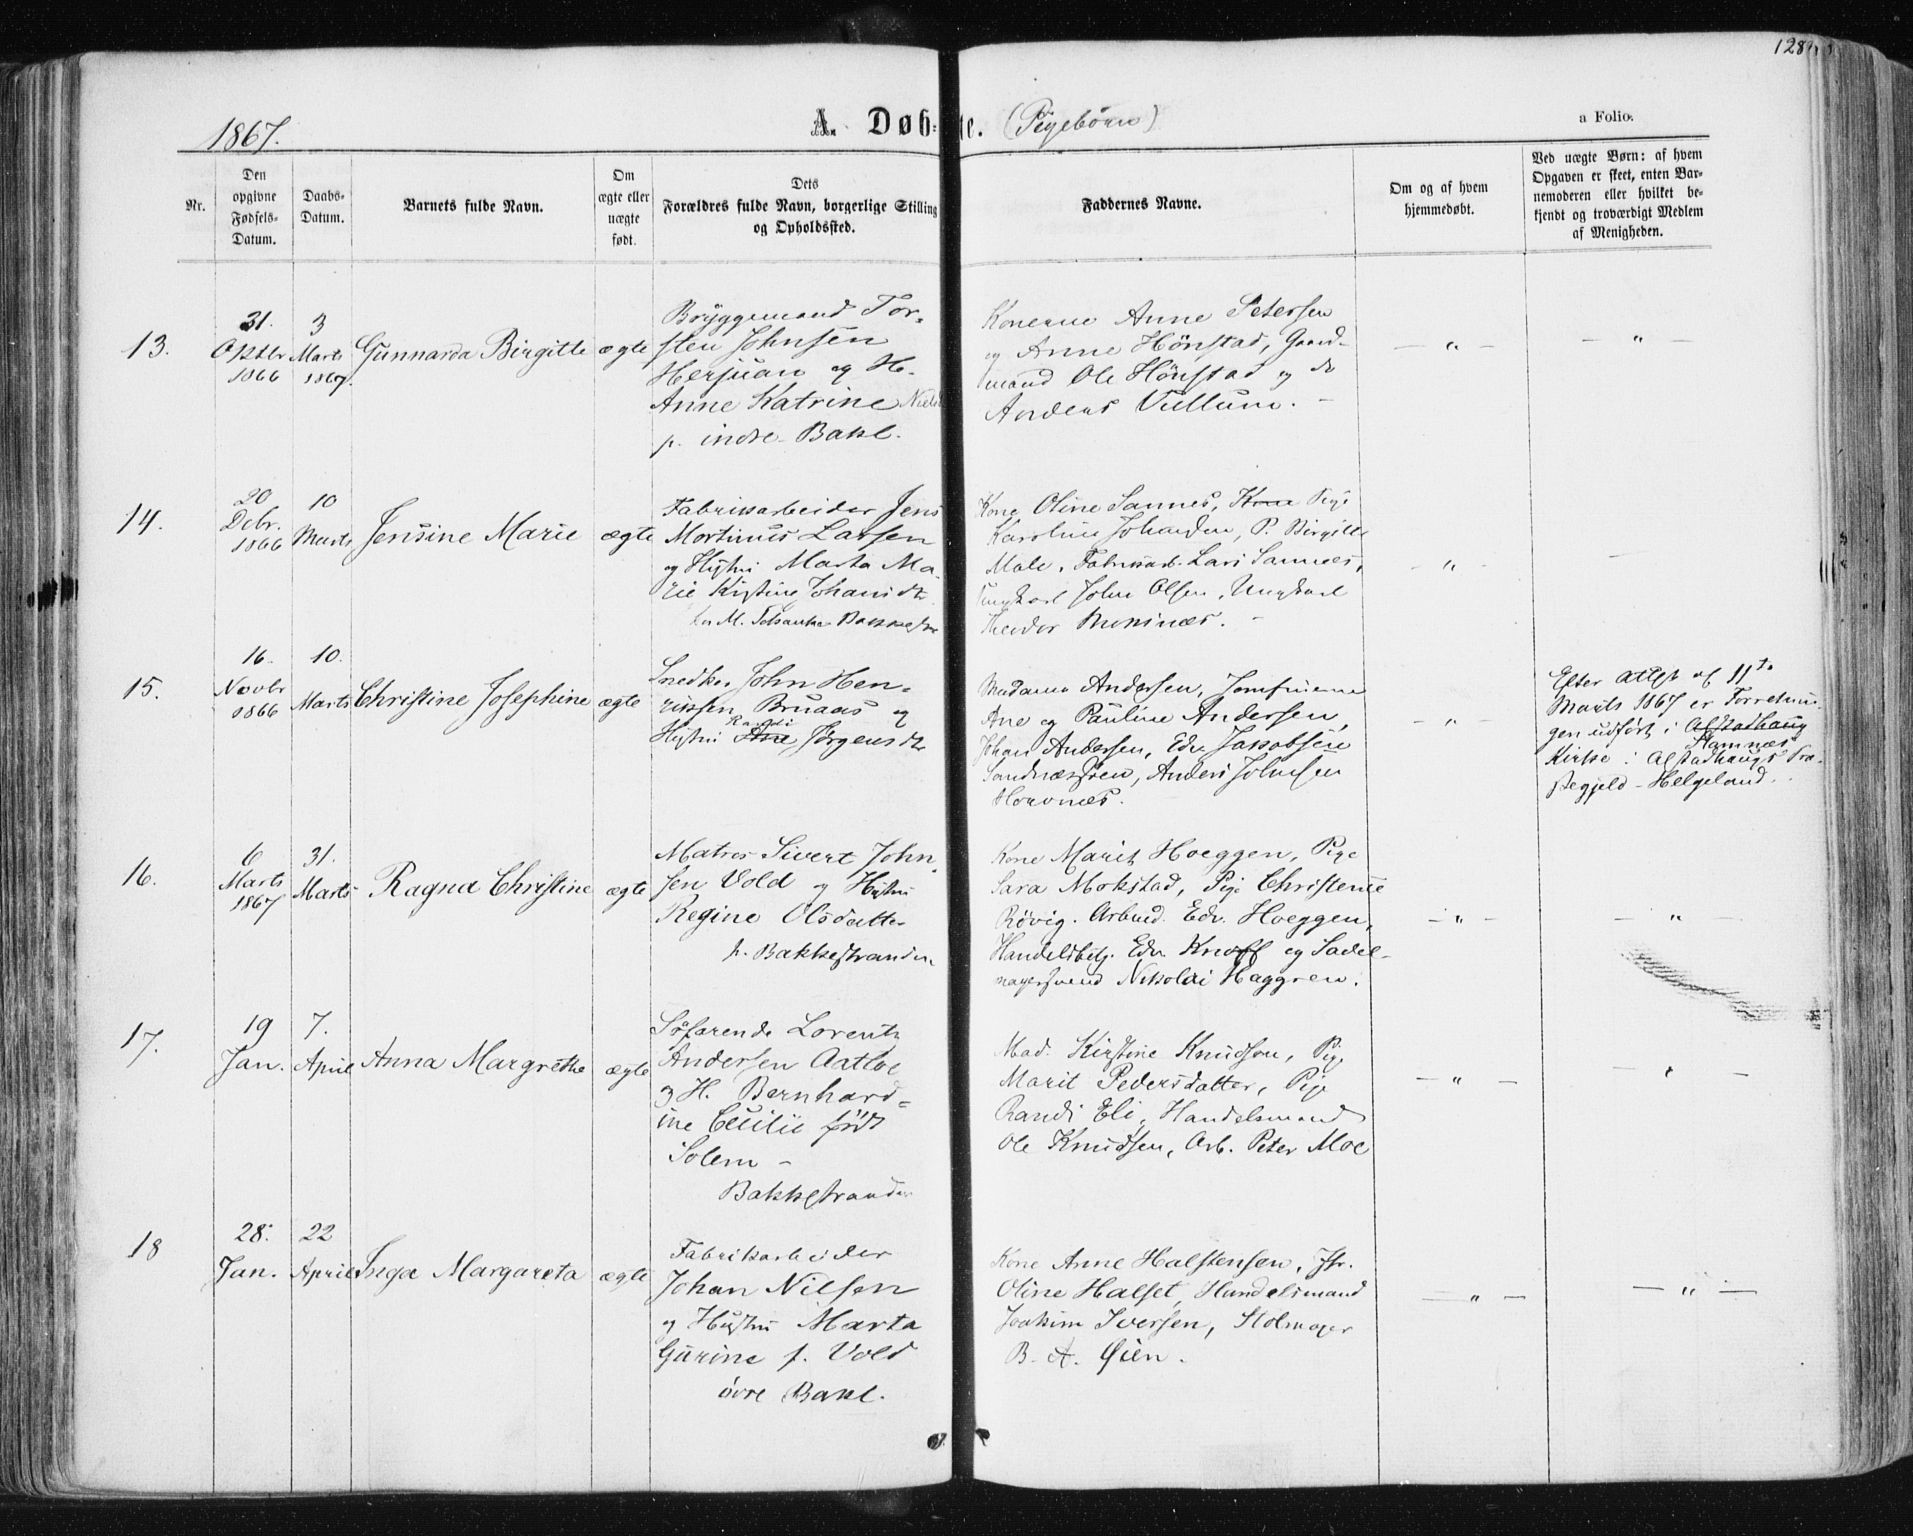 128
1867.
A. Døbte. (Pigebørn)
a Folio.
Nr.
Den opgivne Fødsels-Datum.
Daabs-Datum.
Barnets fulde Navn.
Om ægte eller uægte født.
Dets Forældres fulde Navn, borgerlige Stilling og Opholdssted.
Faddernes Navne.
Om og af hvem hjemmedøbt.
Ved uægte Børn: af hvem Opgaven er skeet, enten Barnemoderen eller hvilket bekjendt og troværdigt Medlem af Menigheden.
13.
31.
1866
3
Marts
1867.
Gunnarda Birgitte
ægte
Bryggemand Tor-
sten Johnsen
Herjuan og H.
Anne Katrine
p. indre Bakl.
Konerne Anne Petersen
og Anne Hönstad, Gaard-
mand Ole Hönstad og do
Anders Vullum. -
— „ —
— „ —
14.
20
Debr.
1866
10
Marts
Jensine Marie
ægte
Fabriksarbeider Jens
Mortinus Larsen
og Hustru Marta Ma-
rie Kistine Johansdtr
Kone Oline Sannes, Kone Pige
Karoline P. Birgitte
Male, Fabriksarb. Lars Sannes,
Ungkarl John Olsen, Ungkarl
Theodor
- „ -
—
15.
16.
Novbr
1866
10.
Marts
Christine Josephine
ægte
Snedker John Hen-
rissen Bruaas og
Hustru Randi Ane Jørgensdtr
Madame Andersen, Jomfruerne
Ane og Pauline Andersen,
Johan Andersen, Edv Jakobsen
Anders Johnsen
- „ -
Efter attest af 11te
Marts 1867 er Forretnin-
gen udført i Alstadhaug
Stamnæs
Kirke i Alstadhaugs Præ-
stegjeld - Helgeland.
16.
6
Marts
1867
31.
Marts
Ragna Christine
ægte
Matros Sivert John-
sen Vold og Hustru
Regine Olsdatter
p. Bakkestranden
Kone Marit Hoeggen, Pige
Sara Mokstad, Pige Christense
Røvig. Arbmd. Edv. Hoeggen,
Handelsbetj. Edv. Knoff og Sadel-
magersvend Nikolai Haggren.
— „ —
— „
17.
19
Jan.
7.
April
Anna Margrethe
ægte
Søfarende Lorentz
Andersen
og H. Bernhard-
ine Cecilie født
Solem -
Bakkestranden
Mad. Kirstine Knudson, Pige
Marit Pedersdatter, Pige
Randi Eli, Handelsmand
Ole Knudsen, Arb. Peter Moe
— „ —
— „ —
18
28.
Jan.
22
April
Inga Margareta
ægte
Fabriksarbeider
Johan Nilsen
og Hustru Marta
Gurine f. Vold
övre Bakl.
Kone Anne Halstensen, Jfr.
Oline Halset, Handelsmand
Joakim Iversen, Stolmager
B. A. Øien.
— „ —
— „ —